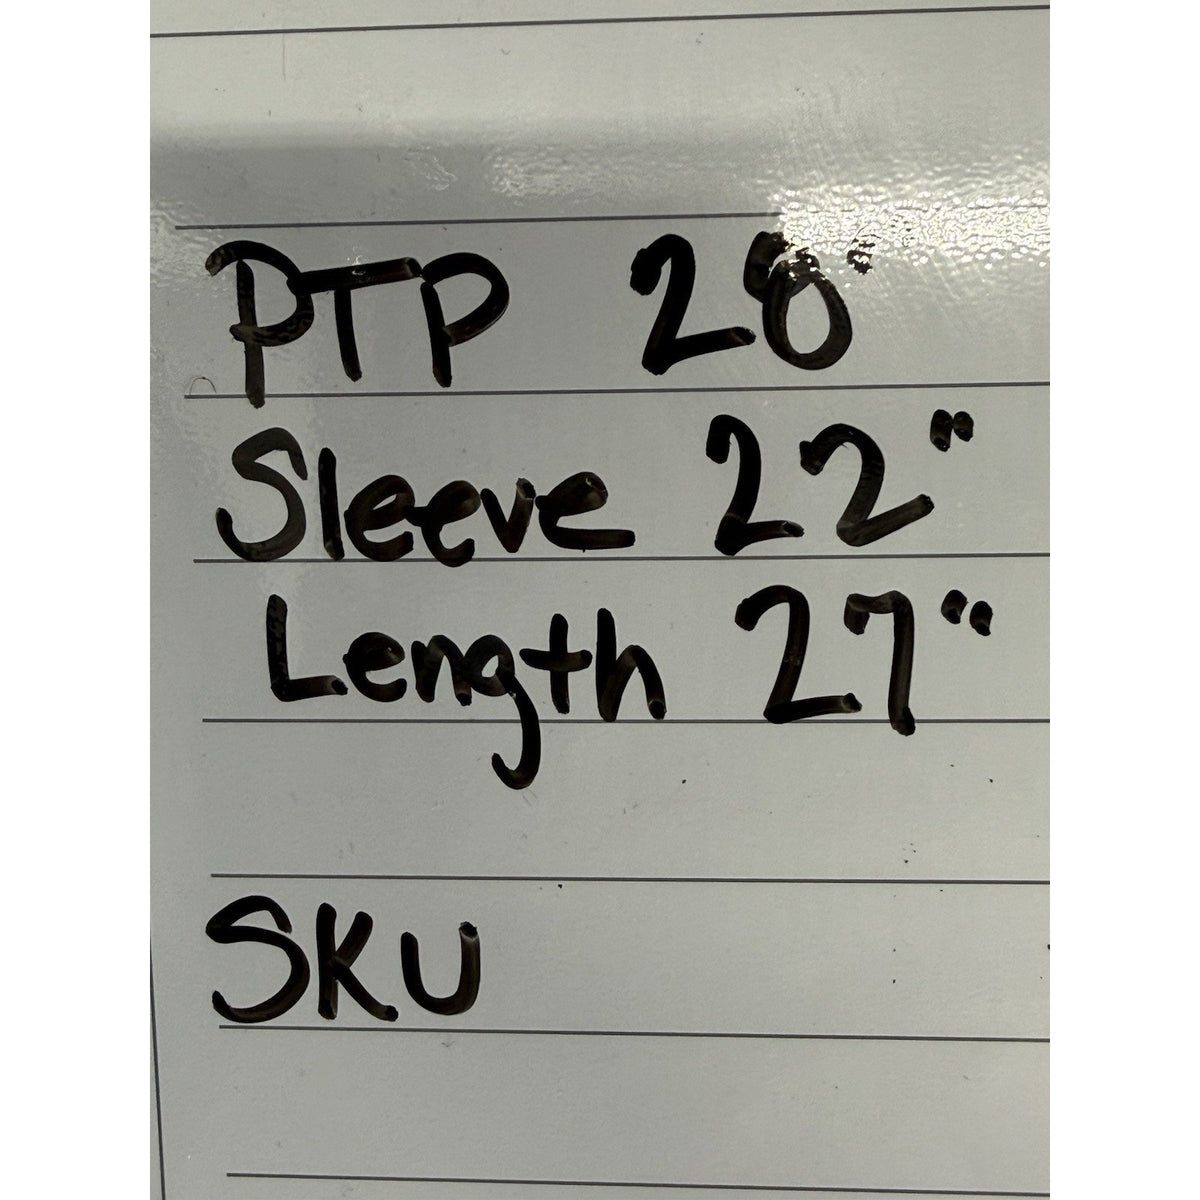 PTP
Sleeve 22"
Length 27"
SKU